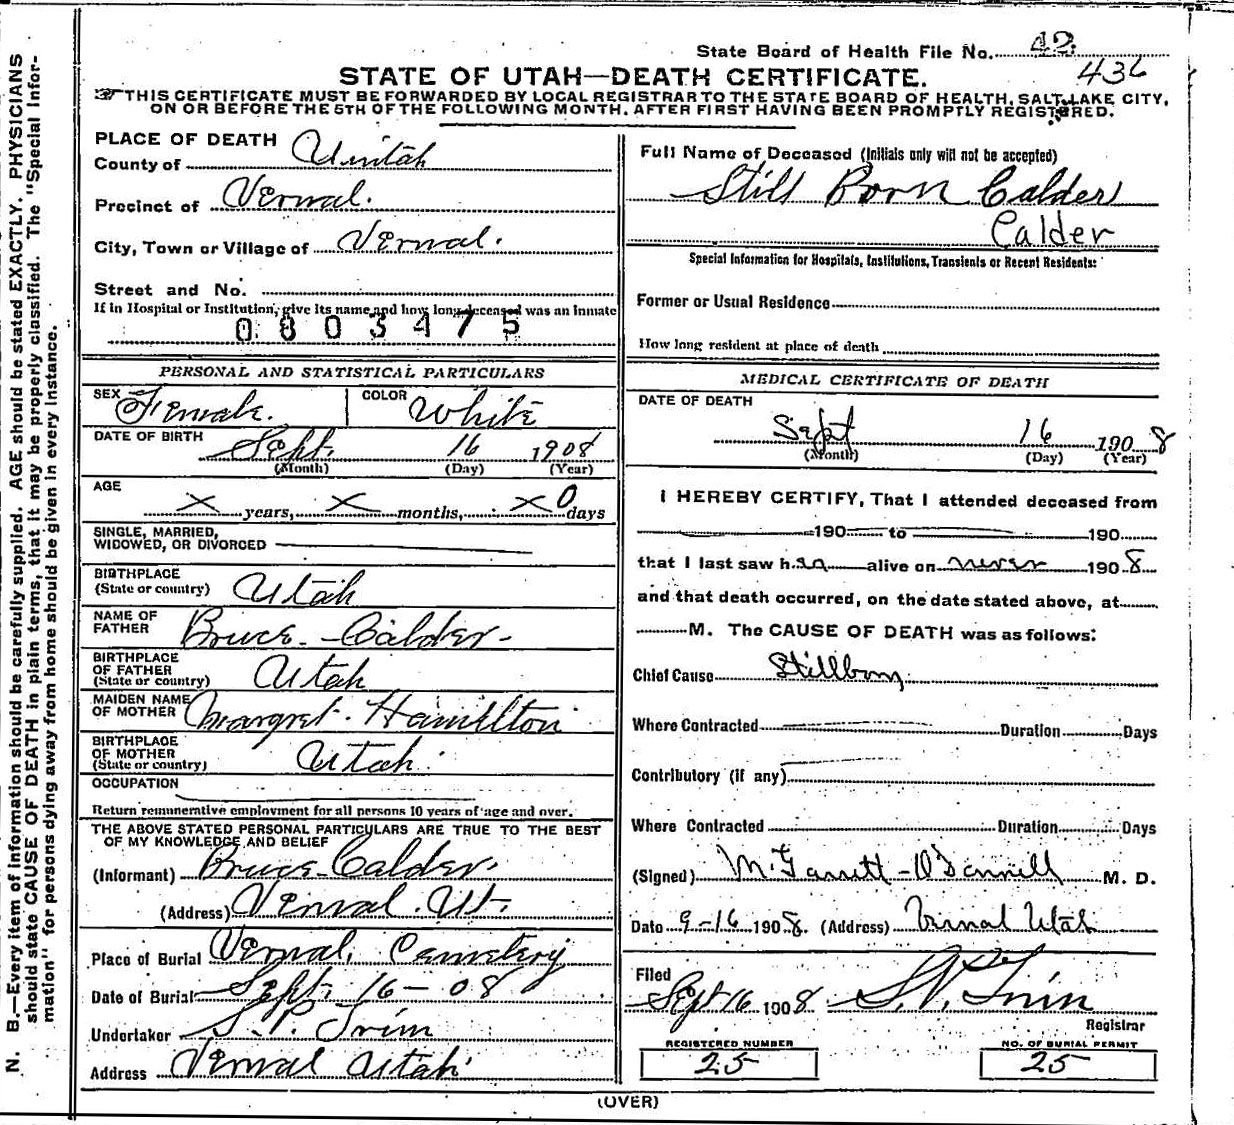 State Board of Health File No. 42
436
STATE OF UTAH—DEATH CERTIFICATE.
THIS CERTIFICATE MUST BE FORWARDED BY LOCAL REGISTRAR TO THE STATE BOARD OF HEALTH, SALT LAKE CITY,
ON OR BEFORE THE 5TH OF THE FOLLOWING MONTH, AFTER FIRST HAVING BEEN PROMPTLY REGISTERED.
PLACE OF DEATH
County of Uintah
Precinct of Vernal.
City, Town or Village of Vernal.
Street and No.
If in Hospital or Institution, give its name and how long deceased was an Inmate
0803475
PERSONAL AND STATISTICAL PARTICULARS
SEX Female. COLOR White
DATE OF BIRTH Sept. 16 1908
(Month) (Day) (Year)
AGE
X years, X months, X 0 days
SINGLE, MARRIED,
WIDOWED, OR DIVORCED
BIRTHPLACE
(State or country) Utah
NAME OF
FATHER Bruce Calder
BIRTHPLACE
OF FATHER
(State or country) Utah
MAIDEN NAME
OF MOTHER Margret Hamilton
BIRTHPLACE
OF MOTHER
(State or country) Utah
OCCUPATION
Return remunerative employment for all persons 10 years of age and over.
THE ABOVE STATED PERSONAL PARTICULARS ARE TRUE TO THE BEST
OF MY KNOWLEDGE AND BELIEF
(Informant) Bruce Calder.
(Address) Vernal. Ut.
Place of Burial Vernal, Cemetery
Date of Burial Sept. 16 - 08
Undertaker S. P. Trim
Address Vernal Utah
Full Name of Deceased (Initials only will not be accepted)
Still Born Calder
Calder
Special Information for Hospitals, Institutions, Transients or Recent Residents:
Former or Usual Residence
How long resident at place of death
MEDICAL CERTIFICATE OF DEATH
DATE OF DEATH
Sept 16 1908
(Month) (Day) (Year)
I HEREBY CERTIFY, That I attended deceased from
190 to 190
that I last saw her alive on never 1908
and that death occurred, on the date stated above, at
M. The CAUSE OF DEATH was as follows:
Chief Cause Stillborn
Where Contracted Duration Days
Contributory (if any)
Where Contracted Duration Days
(Signed) M. Garrett-O'Donnell M. D.
Date 9-16 1908. (Address) Vernal Utah
Filed
Sept 16 1908 S. P. Trim
Registrar
REGISTERED NUMBER
25
NO. OF BURIAL PERMIT
25
(OVER)
N. B.—Every item of information should be carefully supplied. AGE should be stated EXACTLY. PHYSICIANS
should state CAUSE OF DEATH in plain terms, that it may be properly classified. The "Special Infor-
mation" for persons dying away from home should be given in every instance.